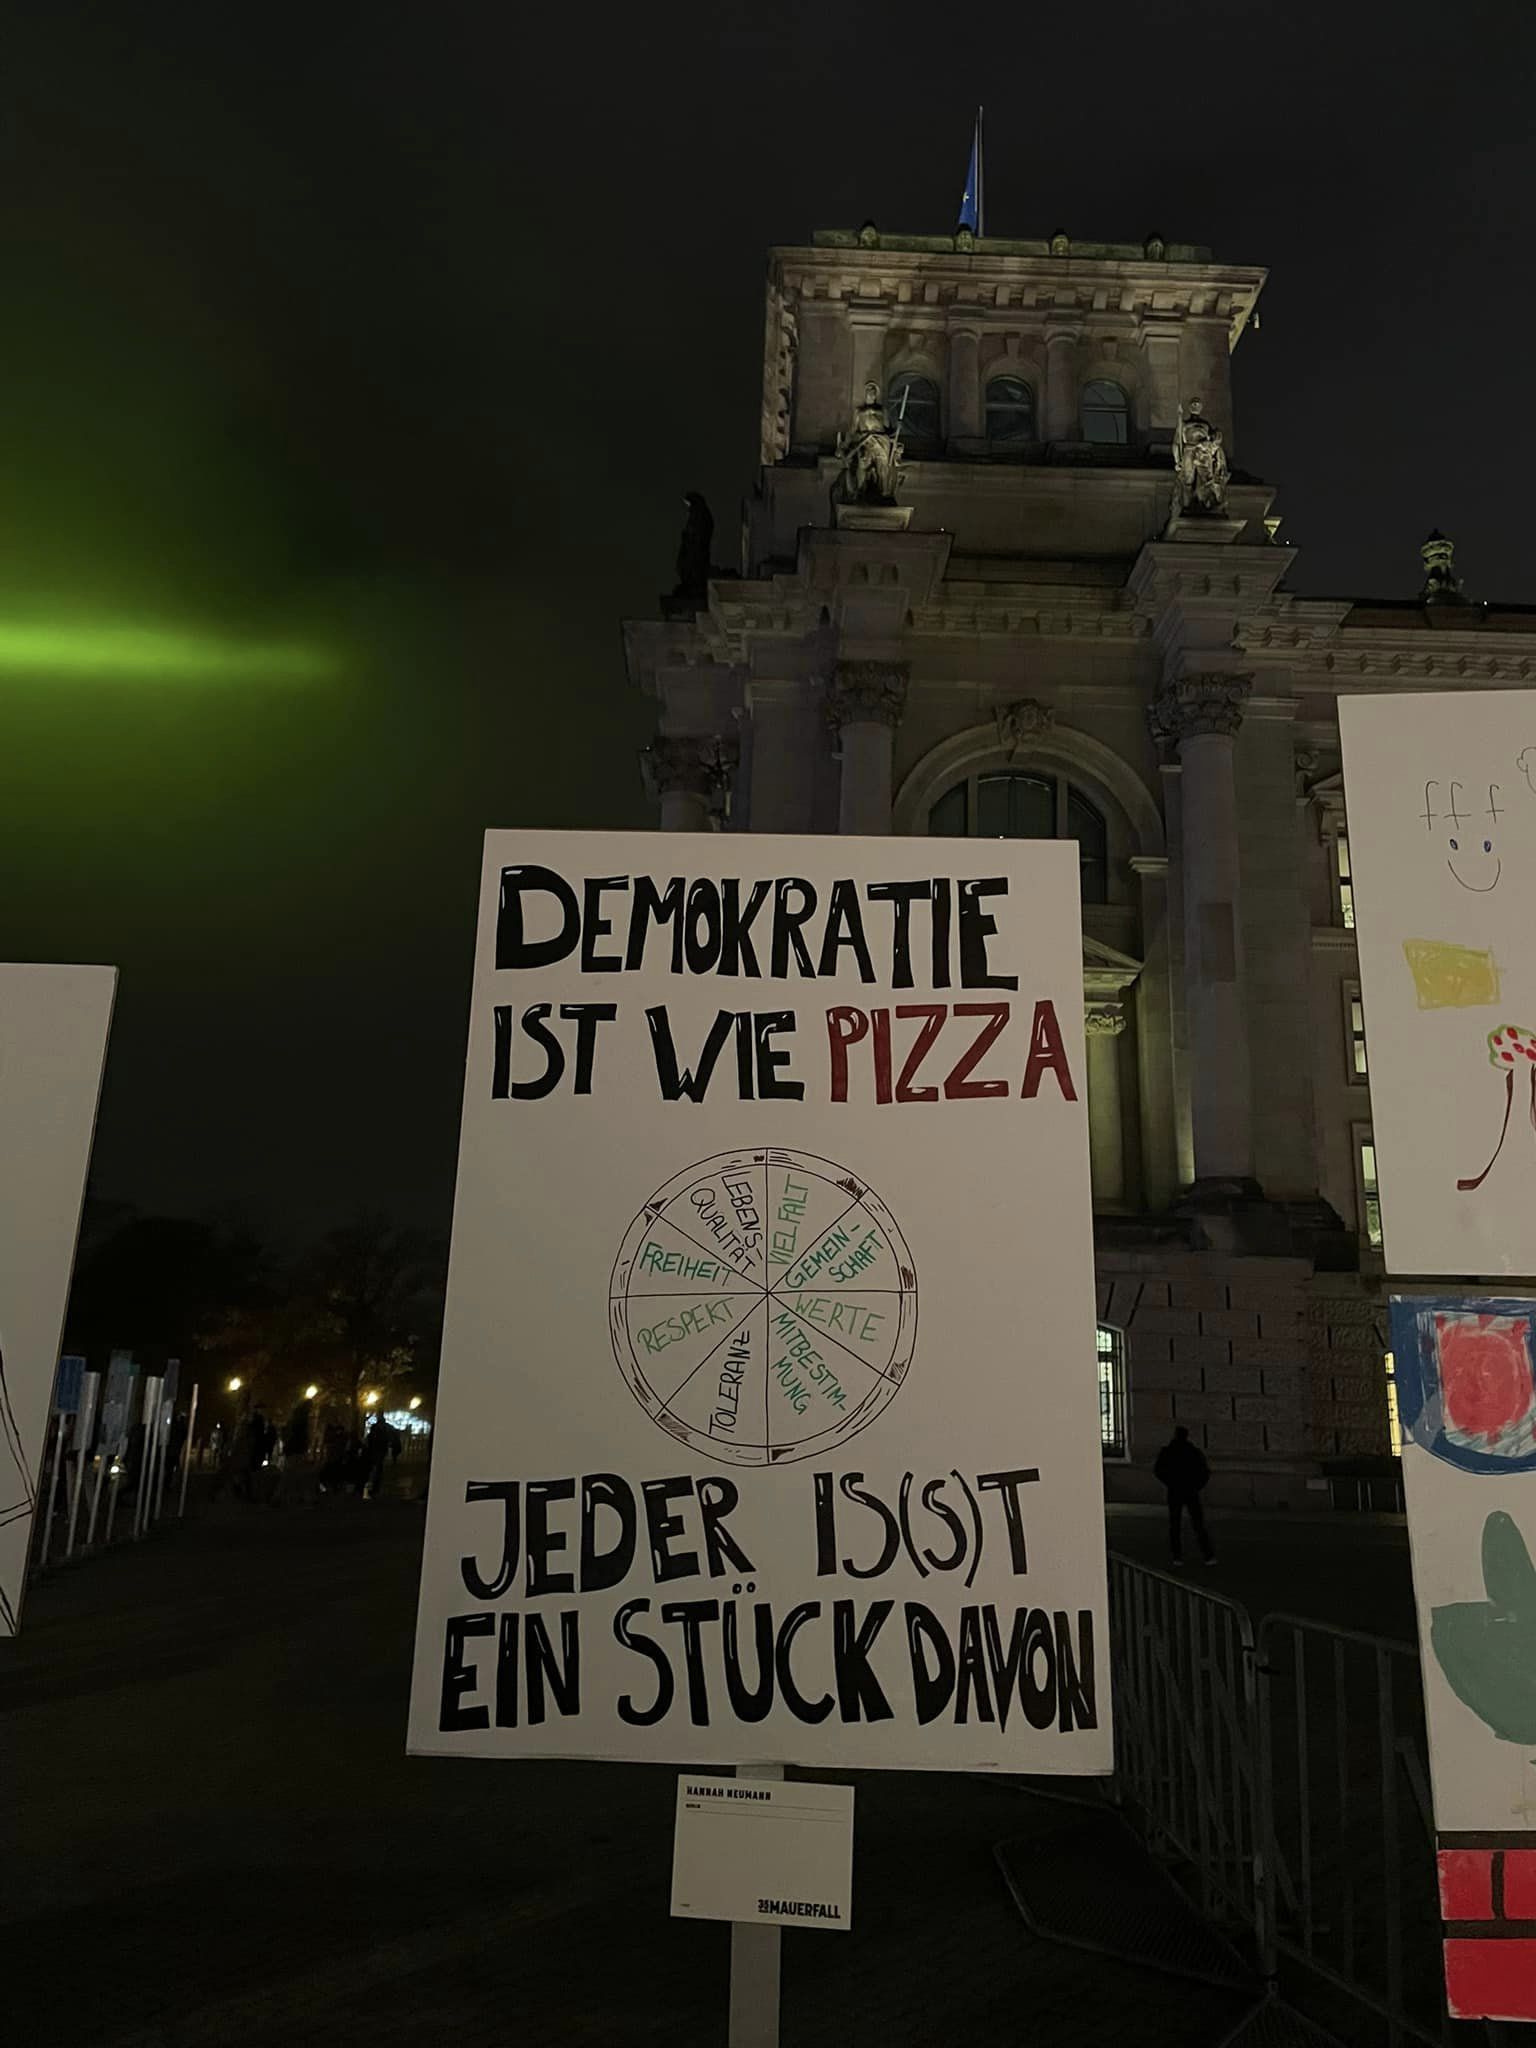 DEMOKRATIE
IST WIE PIZZA
LEBENS-
QUALITÄT
VIELFALT
GEMEIN-
SCHAFT
FREIHEIT
WERTE
RESPEKT
MITBESTIM-
MUNG
TOLERANZ
JEDER IS(S)T
EIN STÜCK DAVON
HANNAH NEUMANN
BERLIN
35 MAUERFALL
fff